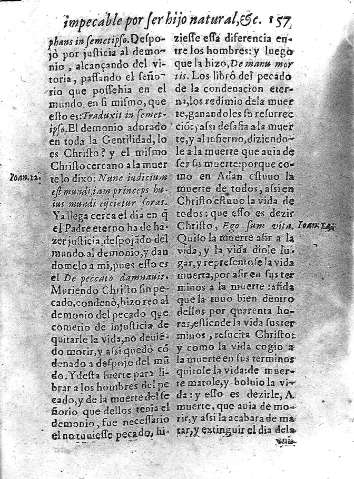 impecable por ser hijo natural, &c. 157
phans in semetipso. Despo-
jò por justicia al demo-
nio, alcançando del vi-
toria, passando el seño-
rio que possehia en el
mundo, en si mismo, que
esto es: Traduxit in semet-
ipso. El demonio adorado
en toda la Gentilidad, lo
es Christo? y el mismo
Christo cercano a la muer
te lo dixo: Nunc iudicium
est mundi, iam princeps hu-
ius mundi eijcietur foras.
Ya llega cerca el dia en q̃
el Padre eterno ha de ha-
zer justicia, despojado del
mundo al demonio, y dan
domelo a mi, pues esso es
el De peccato damnauit.
Muriendo Christo sin pe-
cado, condenò, hizo reo al
demonio del pecado que
cometio de injusticia de
quitarle la vida, no deuiẽ-
do morir, y assi quedò cõ
denado a despojo del mũ
do. Y desta suerte para li-
brar a los hombres del pe
cado, y de la muerte del se
ñorio que dellos tenia el
demonio, fue necessario
el no tuuiesse pecado, hi-
Ioan. 12.
ziesse esta diferencia en-
tre los hombres: y luego
que la hizo, De manu mor
tis. Los librò del pecado
de la condenacion eter-
na, los redimio de la muer
te, ganandoles su resurrec
ciõ; assi desafia a la muer
te, y al infierno, diziendo-
le a la muerte que auia de
ser su muerte: porque co-
mo en Adan estuuo la
muerte de todos, assi en
Christo estuuo la vida de
todos: que esso es dezir
Christo, Ego sum vita.
Quiso la muerte asir a la
vida, y la vida diole lu-
gar, y representose la vida
muerta, por asir en sus ter
minos a la muerte: asida
que la tuuo bien dentro
dellos por quarenta ho-
ras, estiende la vida sus ter
minos, resucita Christo:
y como la vida cogio a
la muerte en sus terminos
quitole la vida: de muer-
te matole, y boluio la vi-
da: y esso es dezirle, A
muerte, que auia de mo-
rir, y assi la acabara de ma
tar, y extinguir el dia del a